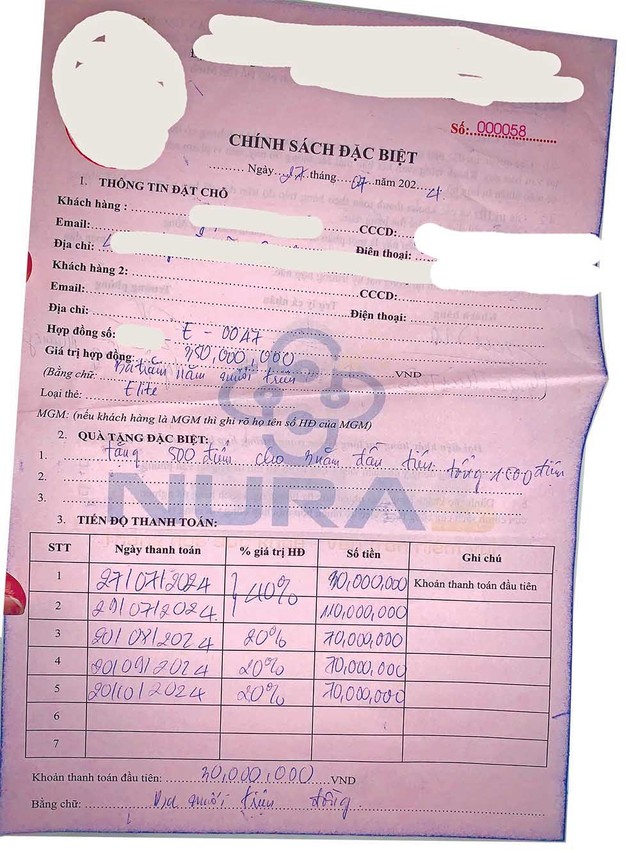 Số: 000058
CHÍNH SÁCH ĐẶC BIỆT
Ngày 27 tháng 07 năm 2024
1. THÔNG TIN ĐẶT CHỖ
Khách hàng : CCCD:
Email:
Địa chỉ: Điện thoại:
Khách hàng 2: CCCD:
Email:
Địa chỉ: Điện thoại:
Hợp đồng số: E - 00A7
Giá trị hợp đồng: 350,000,000 VND
(Bằng chữ: Ba trăm năm mươi triệu )
Loại thẻ: Elite
MGM: (nếu khách hàng là MGM thì ghi rõ họ tên số HĐ của MGM)
2. QUÀ TẶNG ĐẶC BIỆT:
1. tặng 500 điểm cho 3 năm đầu tiên tổng 1500 điểm
2.
3.
NURA
3. TIẾN ĐỘ THANH TOÁN:
STT Ngày thanh toán % giá trị HĐ Số tiền Ghi chú
1 27/07/2024 40% 30,000,000 Khoản thanh toán đầu tiên
2 29/07/2024 110,000,000
3 20/08/2024 20% 70,000,000
4 20/09/2024 20% 70,000,000
5 20/10/2024 20% 70,000,000
6
7
Khoản thanh toán đầu tiên: 30,000,000 VND
Bằng chữ: Ba mươi triệu đồng